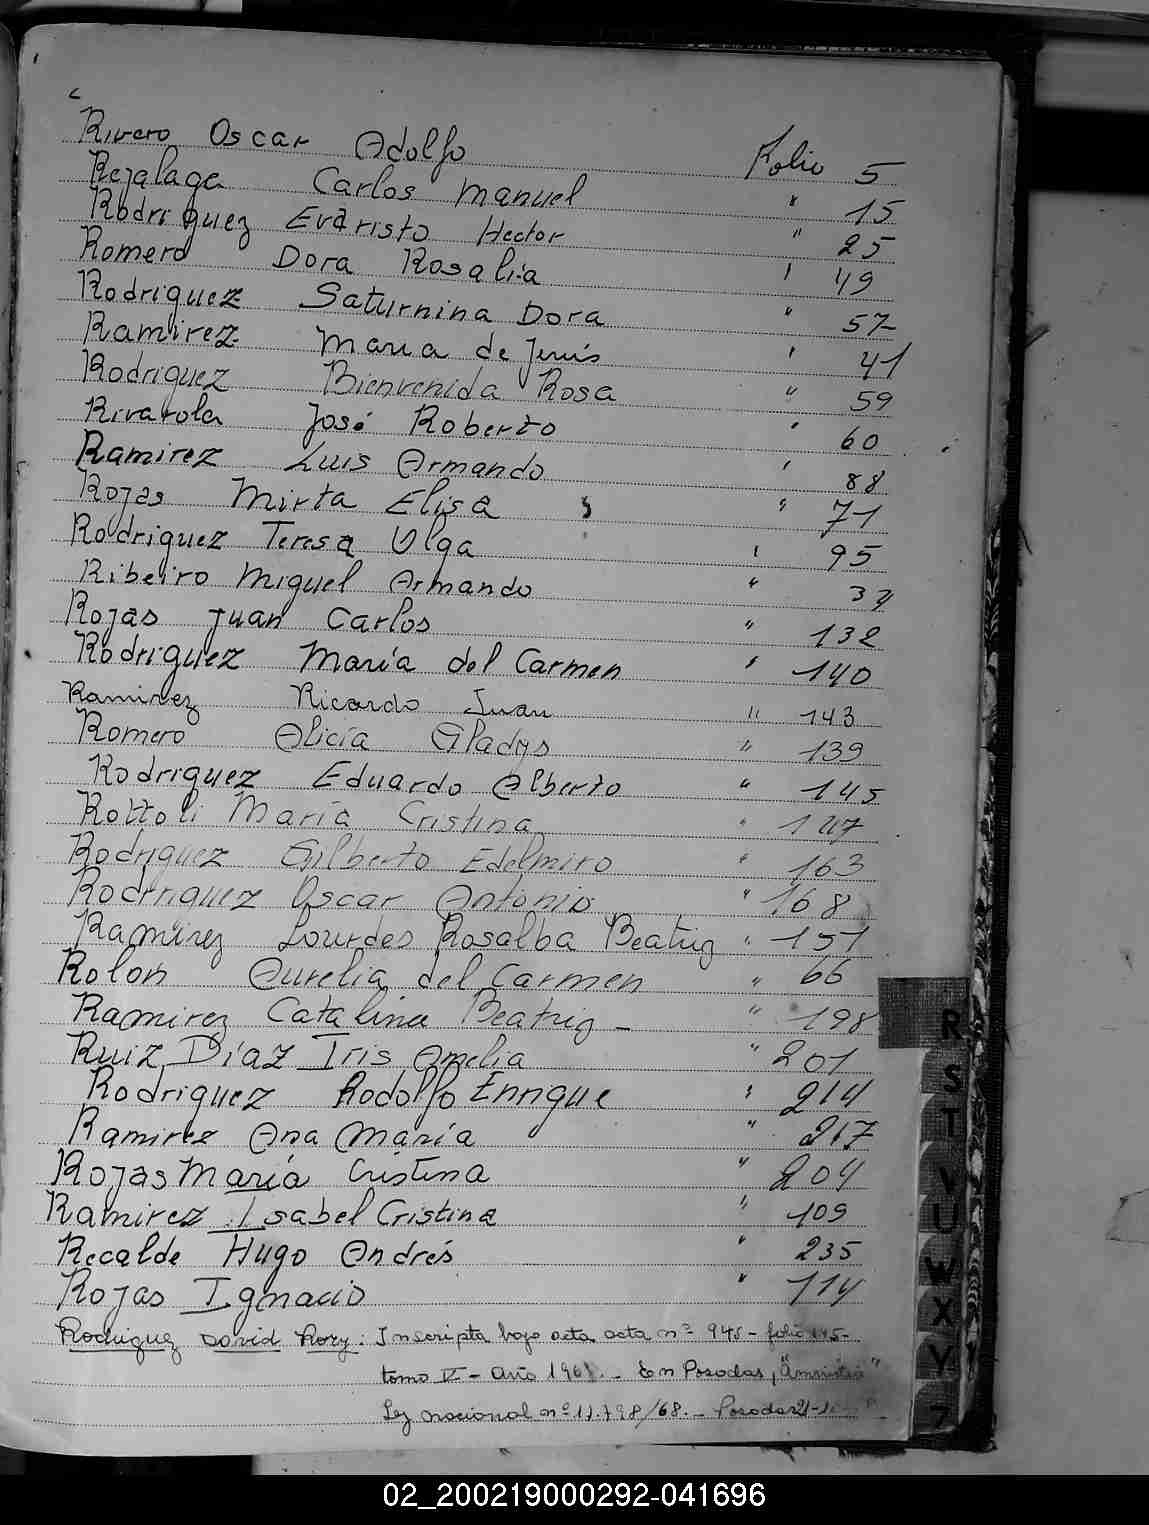 Rivero Oscar Adolfo Folio 5
Rejalaga Carlos Manuel " 15
Rodriguez Evaristo Hector " 25
Romero Dora Rosalia " 49
Rodriguez Saturnina Dora " 57
Ramirez Maria de Jesús " 41
Rodriguez Bienvenida Rosa " 59
Rivarola José Roberto " 60
Ramirez Luis Armando " 88
Rojas Mirta Elisa " 71
Rodriguez Teresa Olga " 95
Ribeiro Miguel Armando "
Rojas Juan Carlos " 132
Rodriguez María del Carmen " 140
Ramirez Ricardo Juan " 143
Romero Alicia Gladys " 139
Rodriguez Eduardo Alberto " 145
Rottoli María Cristina "
Rodriguez Gilberto Edelmiro " 163
Rodriguez Oscar Antonio " 168
Ramirez Lourdes Rosalba Beatriz " 151
Rolon Aurelia del Carmen " 66
Ramirez Catalina Beatriz - " 198
Ruiz Díaz Iris Amelia " 201
Rodriguez Rodolfo Enrique " 214
Ramirez Ana María " 217
Rojas María Cristina " 204
Ramirez Isabel Cristina " 109
Recalde Hugo Andrés " 235
Rojas Ignacio " 114
Rodriguez David Rory: Inscripta bajo acta nº 945 - folio
tomo IV - Año - En Posadas, "Amnistia"
Ley nacional nº /68. - Posadas
R
S
T
V
U
W
X
Y
Z
02_200219000292-041696